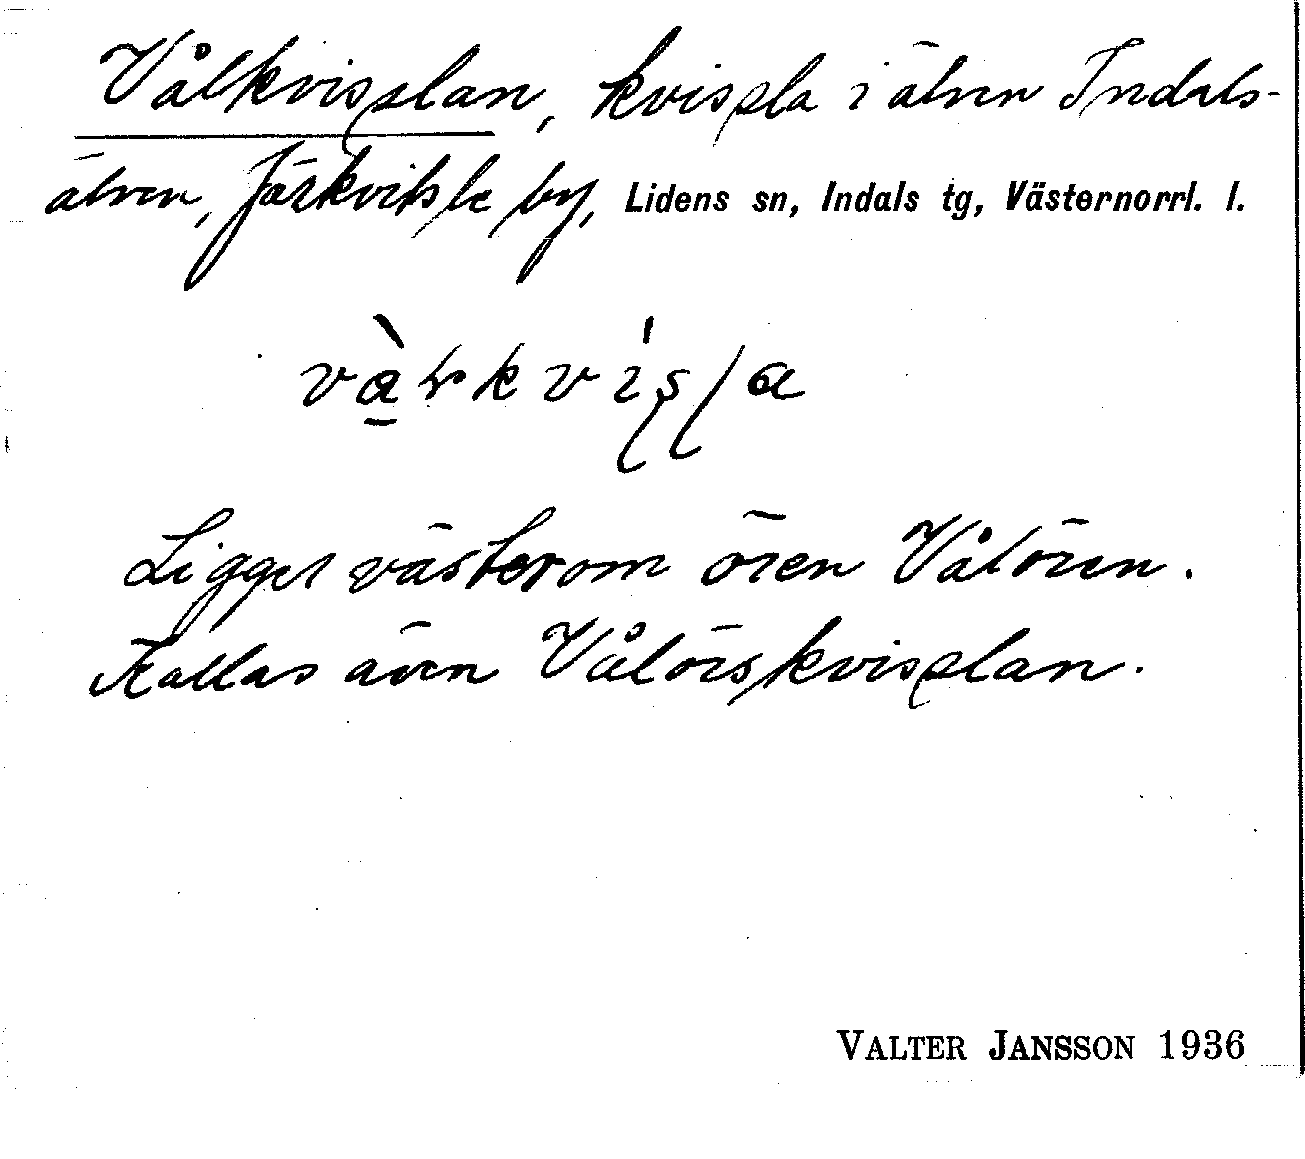 Vålkvisslan, kvissla i älven Indals-
älven, Järkvitsle by, Lidens sn, Indals tg, Västernorrl. l.
Ligger västerom ören Vålören.
Kallas även Vålörskvisslan.
VALTER JANSSON 1936